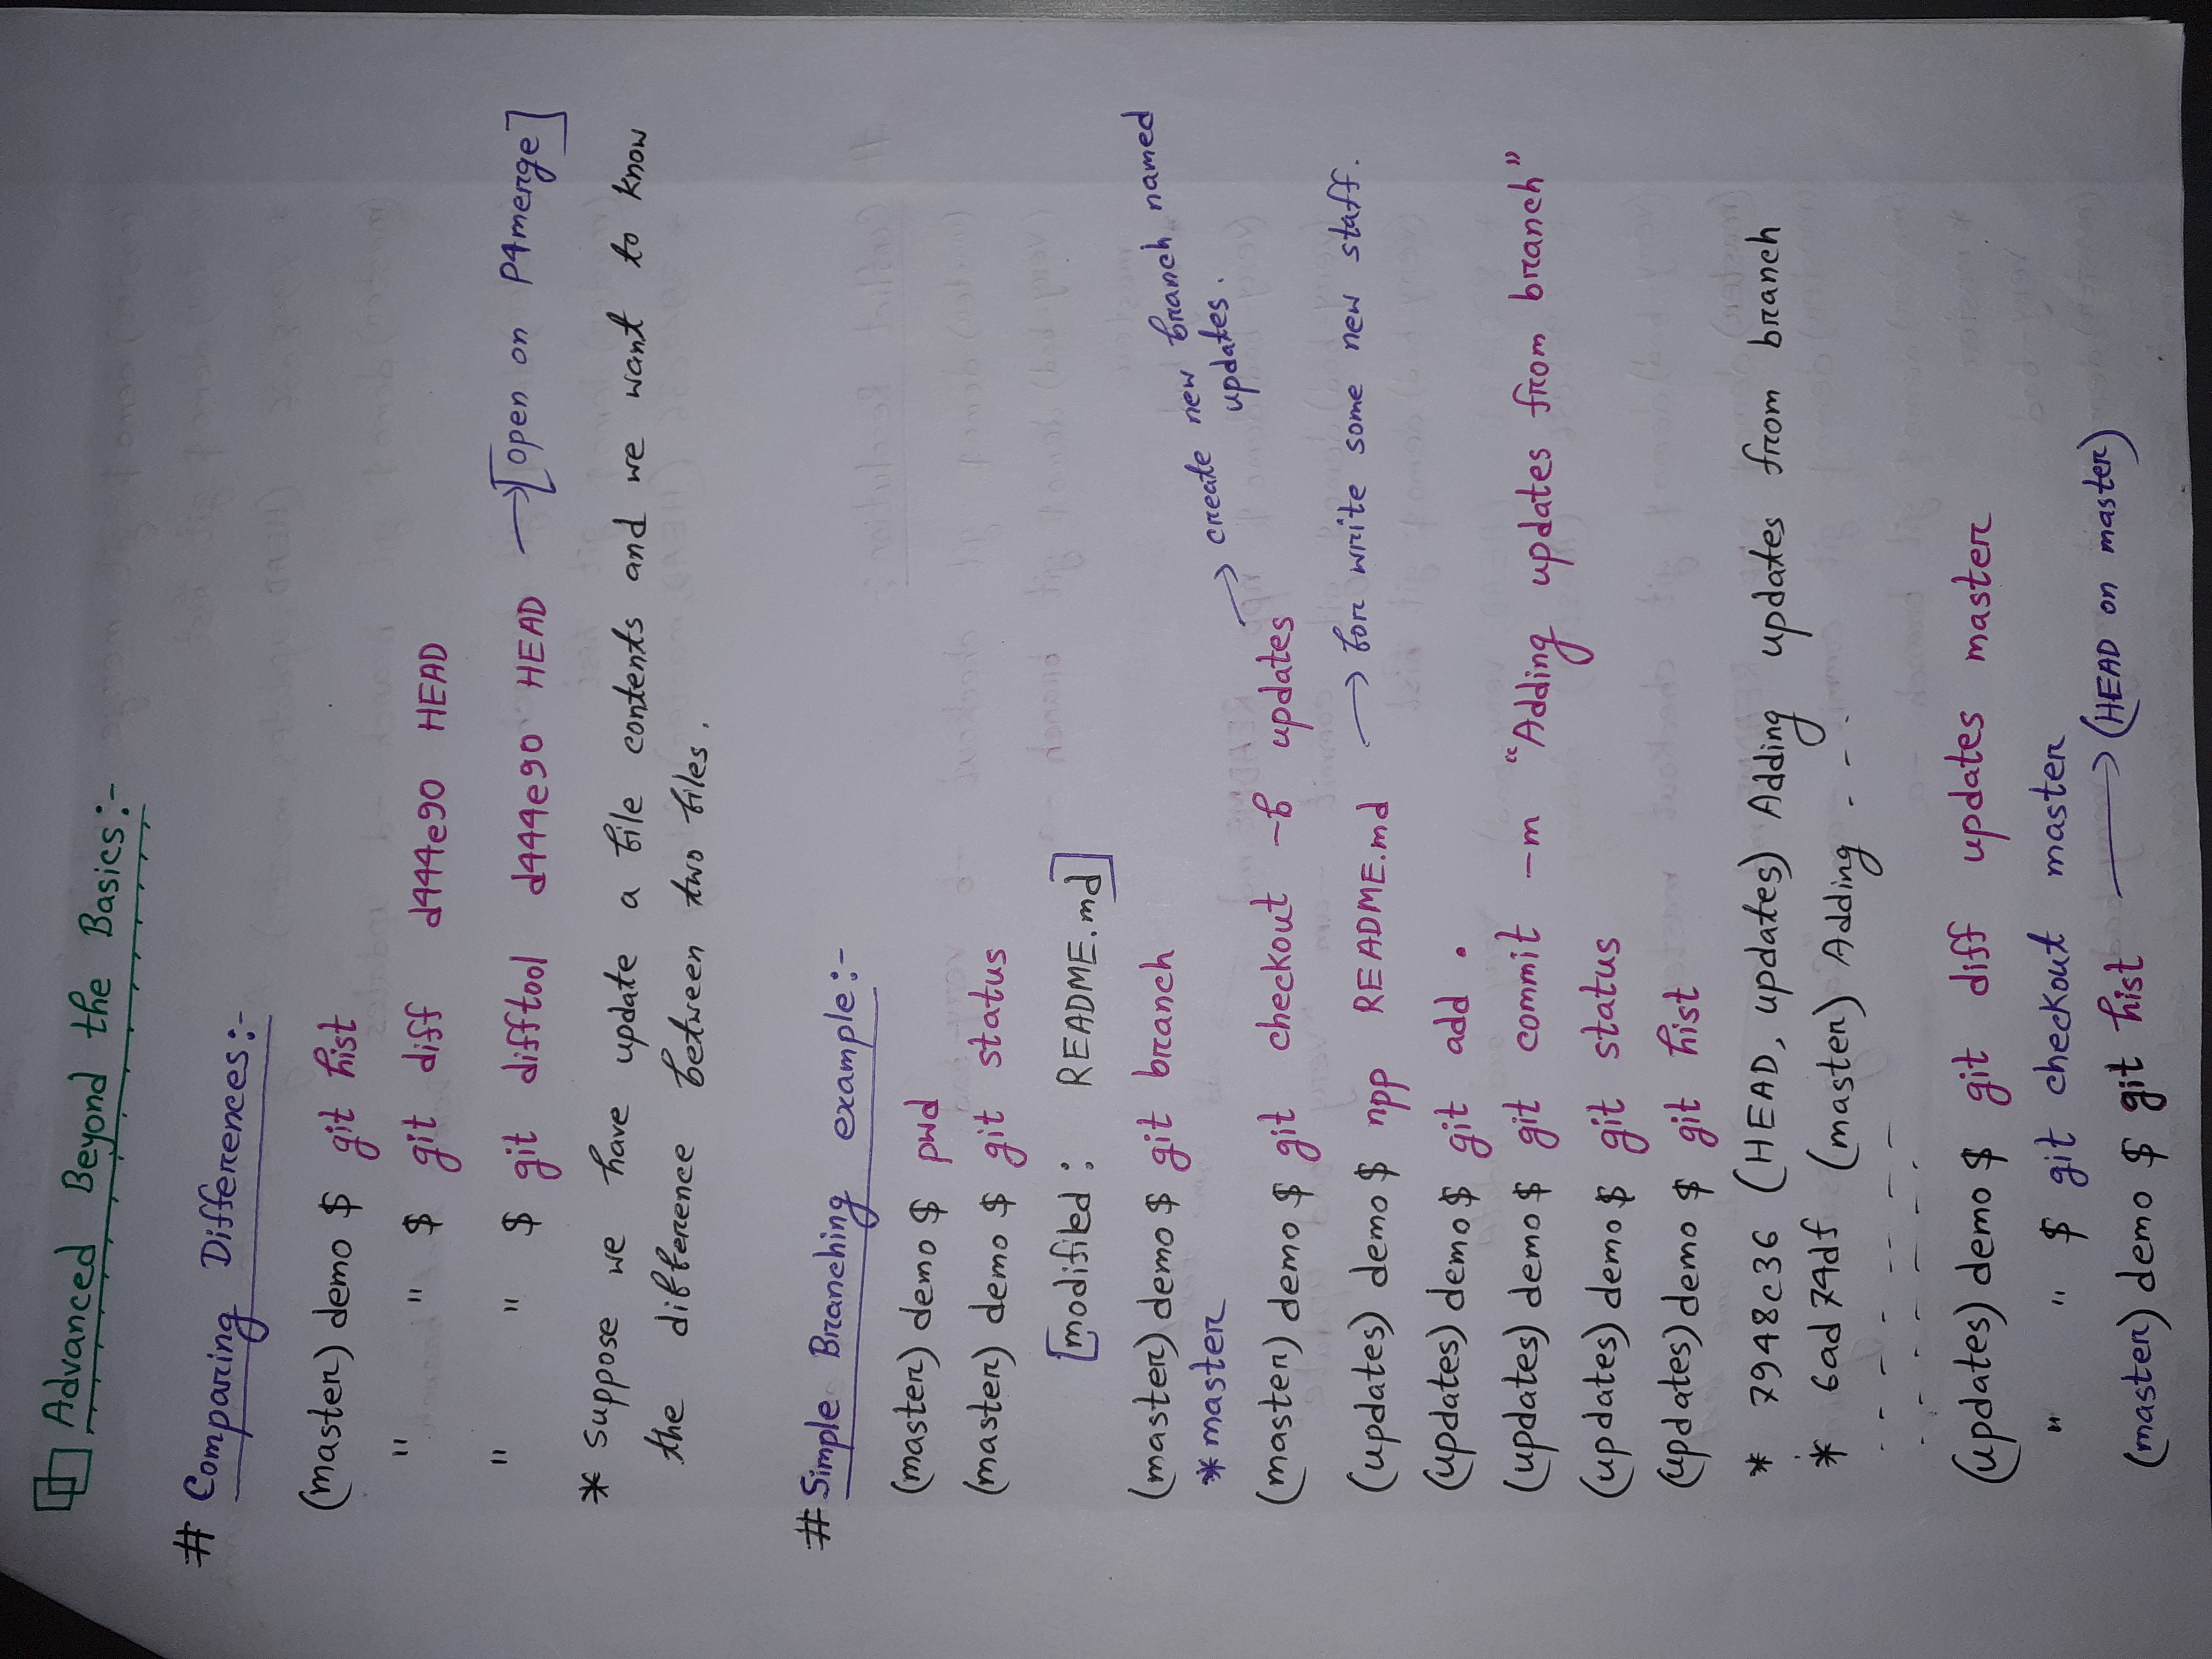 Advanced Beyond the Basics:-
# Comparing Differences:-
(master) demo $ git hist
" " $ git diff d444e90 HEAD
" " $ git difftool d444e90 HEAD → [open on P4merge]
* Suppose we have update a file contents and we want to know
the difference between two files.
# Simple Branching example:-
(master) demo $ pwd
(master) demo $ git status
[modified: README.md]
(master) demo $ git branch
* master
(master) demo $ git checkout -b updates → create new branch named
updates.
(updates) demo $ npp README.md → for write some new staff.
(updates) demo $ git add .
(updates) demo $ git commit -m "Adding updates from branch"
(updates) demo $ git status
(updates) demo $ git hist
* 7948c36 (HEAD, updates) Adding updates from branch
* 6ad74df (master) Adding - - -
- - - - - - -
- - - - - - -
(updates) demo $ git diff updates master
" " $ git checkout master
(master) demo $ git hist → (HEAD on master)